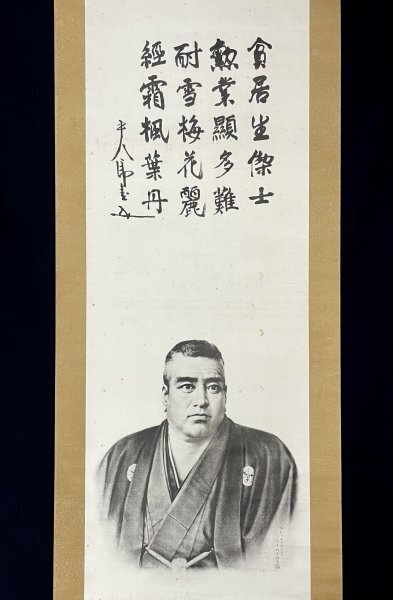 貧居生傑士
勲業顯多難
耐雪梅花麗
經霜楓葉丹